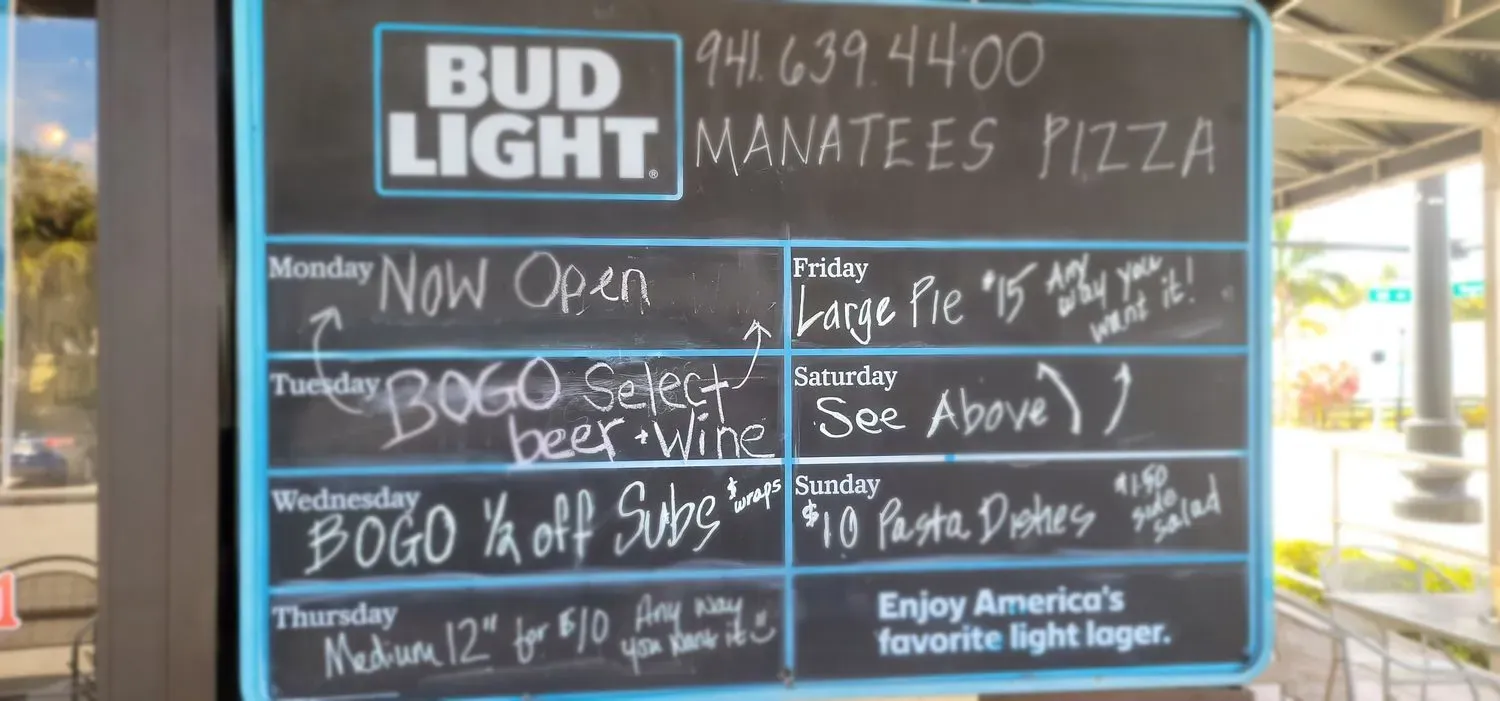 BUD
LIGHT®
941.639.4400
MANATEES PIZZA
Monday
Now Open
Tuesday
BOGO Select
beer + Wine
Wednesday
BOGO ½ off Subs & wraps
Thursday
Medium 12" for $10
Any Way
you want it
Friday
Large Pie $15
Any
way you
want it!
Saturday
See Above
Sunday
$10 Pasta Dishes
$1.50
side
salad
Enjoy America's
favorite light lager.